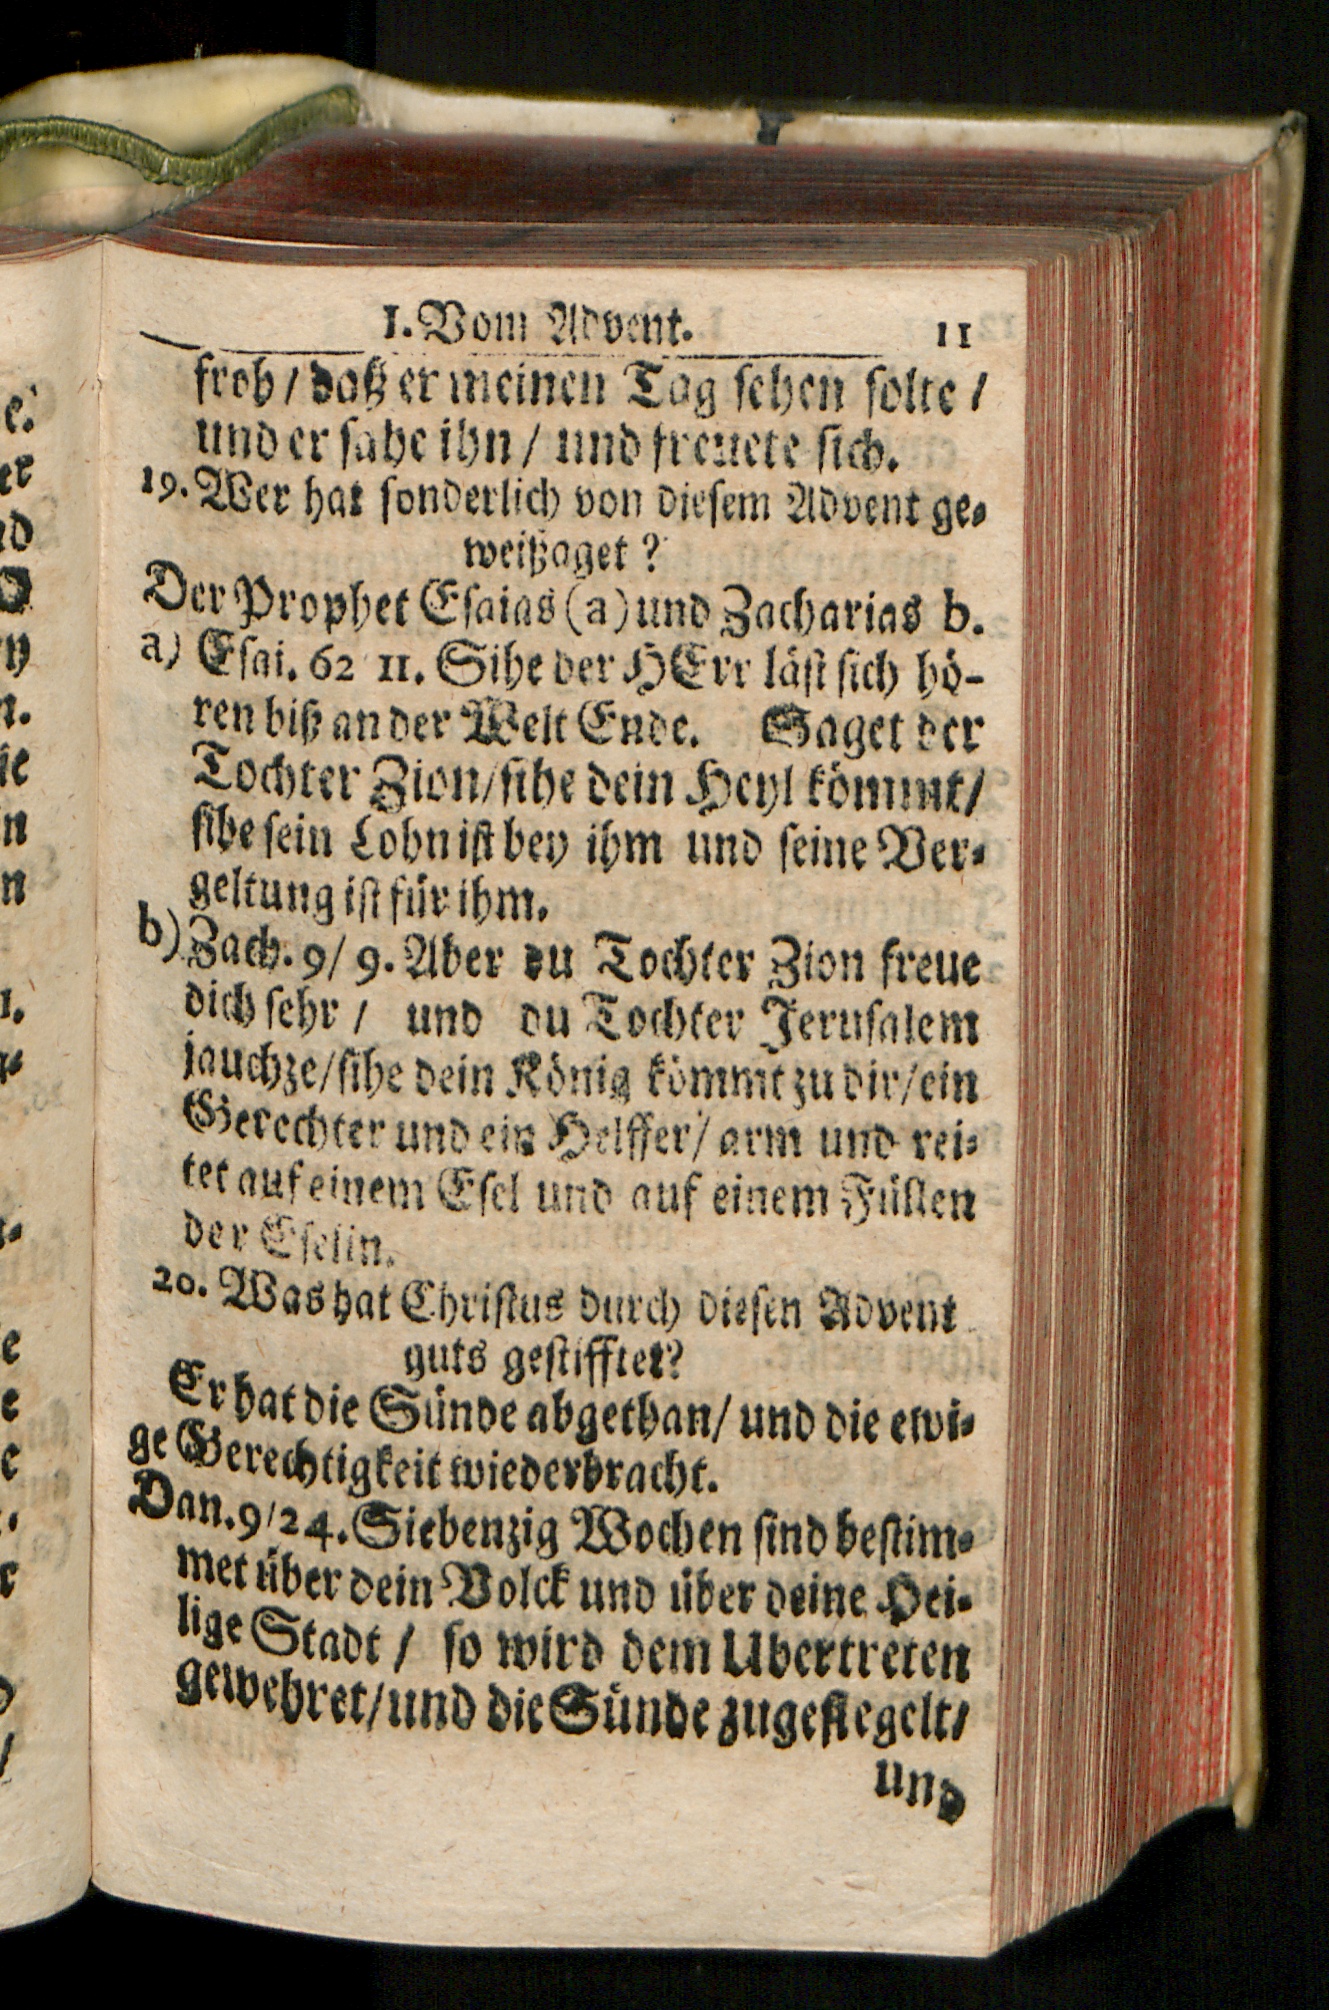 I. Vom Advent. 11
froh / daß er meinen Tag sehen solte /
und er sahe ihn / und freuete sich.
19. Wer hat sonderlich von diesem Advent ge-
weißaget ?
Der Prophet Esaias (a) und Zacharias b.
a) Esai. 62 11. Sihe der HErr läst sich hö-
ren biß an der Welt Ende. Saget der
Tochter Zion / sihe dein Heyl kömmt /
sihe sein Lohn ist bey ihm und seine Ver-
geltung ist für ihm.
b) Zach. 9 / 9. Aber du Tochter Zion freue
dich sehr / und du Tochter Jerusalem
jauchze / sihe dein König kömmt zu dir / ein
Gerechter und ein Helffer / arm und rei-
tet auf einem Esel und auf einem Füllen
der Eselin.
20. Was hat Christus durch diesen Advent
guts gestifftet?
Er hat die Sünde abgethan / und die ewi-
ge Gerechtigkeit wiederbracht.
Dan. 9 / 24. Siebenzig Wochen sind bestim-
met über dein Volck und über deine Hei-
lige Stadt / so wird dem Ubertreten
gewehret / und die Sünde zugesiegelt /
und